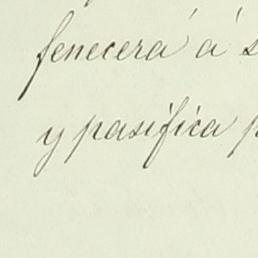 fenecerá á
y pasifica